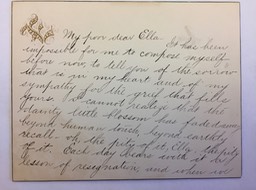 My poor dear Ella. It has been
impossible for me to compose myself
before now, to tell you of the sorrow
that is in my heart and of my
sympathy for the grief that fills
yours. I cannot realize that the
dainty little blossom has faded away
beyond human love, beyond earthly
recall - oh, the pity of it, Ella, the pity
of it. Each day bears with it a
lesson of resignation, and when we